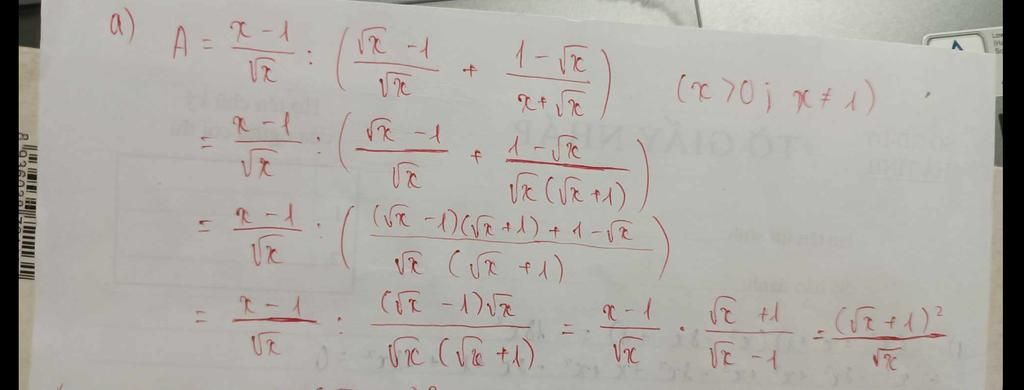 a) A = \frac{x-1}{\sqrt{x}} : \left( \frac{\sqrt{x}-1}{\sqrt{x}} + \frac{1-\sqrt{x}}{x+\sqrt{x}} \right) (x>0; x≠1)
= \frac{x-1}{\sqrt{x}} : \left( \frac{\sqrt{x}-1}{\sqrt{x}} + \frac{1-\sqrt{x}}{\sqrt{x}(\sqrt{x}+1)} \right)
= \frac{x-1}{\sqrt{x}} : \left( \frac{(\sqrt{x}-1)(\sqrt{x}+1)+1-\sqrt{x}}{\sqrt{x}(\sqrt{x}+1)} \right)
= \frac{x-1}{\sqrt{x}} : \frac{(\sqrt{x}-1)\sqrt{x}}{\sqrt{x}.(\sqrt{x}+1)} = \frac{x-1}{\sqrt{x}} \cdot \frac{\sqrt{x}+1}{\sqrt{x}-1} = \frac{(\sqrt{x}+1)^2}{\sqrt{x}}
TỜ GIẤY NHÁP